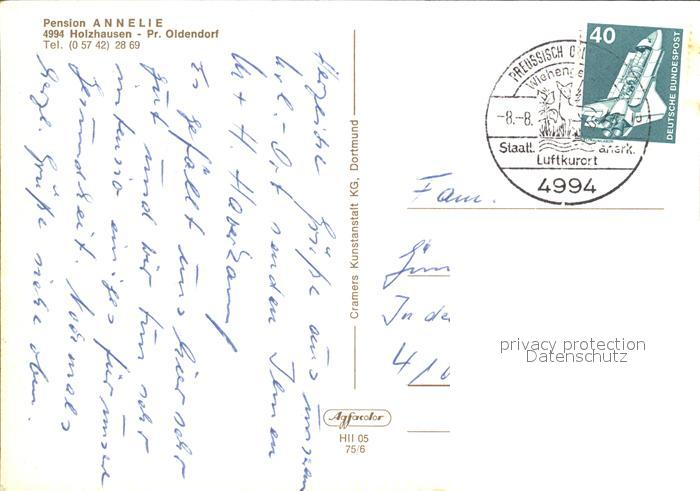 Pension ANNELIE
4994 Holzhausen - Pr. Oldendorf
Tel. (0 57 42) 28 69
Herzliche Grüße aus unserem
Url.-Ort senden Ihnen
u. H.
Es gefällt uns hier sehr
gut und wir tun sehr
intensiv einiges für unsere
Gesundheit. Nochmals
herzl. Grüße siehe oben.
Cramers Kunstanstalt KG., Dortmund
Agfacolor
HII 05
75/6
PREUSSISCH
Wiehenge
-8.-8.
Staatl. anerk.
Luftkurort
4994
40
DEUTSCHE BUNDESPOST
Fam.
In de
4/
privacy protection
Datenschutz